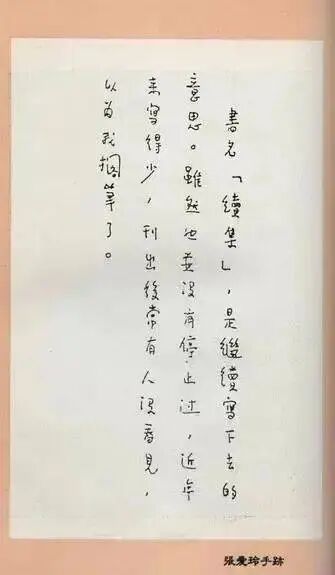 書名「續集」，是繼續寫下去的
意思。雖然也並沒有停止过，近年
来寫得少，刊出後常有人没看見，
以为我擱筆了。
張愛玲手跡